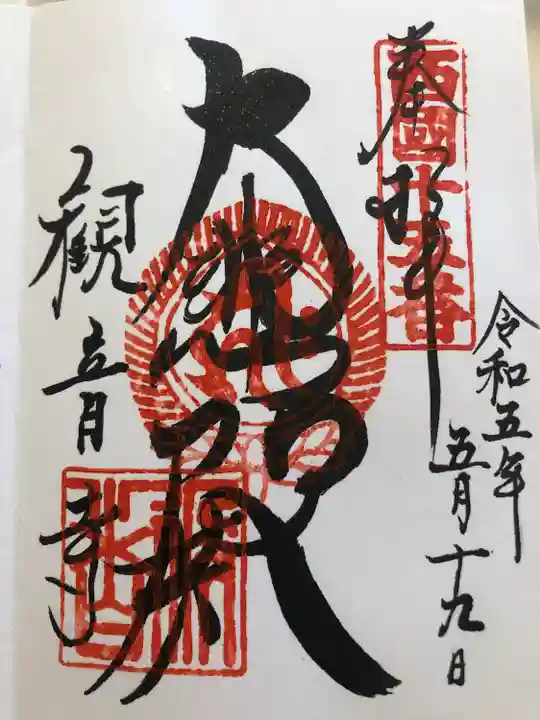 奉拝
西國十五番
令和五年
五月十九日
大悲殿
観音寺